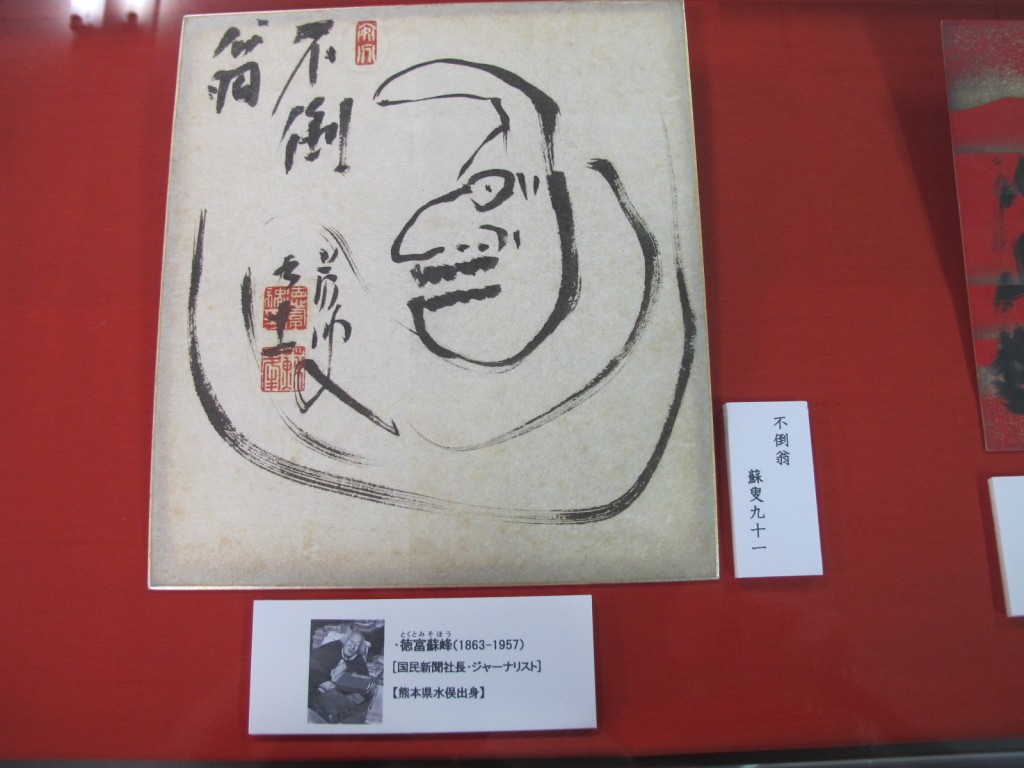 不倒
翁
不倒翁
蘇叟九十一
とくとみそほう
・徳富蘇峰(1863-1957)
[国民新聞社長・ジャーナリスト]
【熊本県水俣出身】